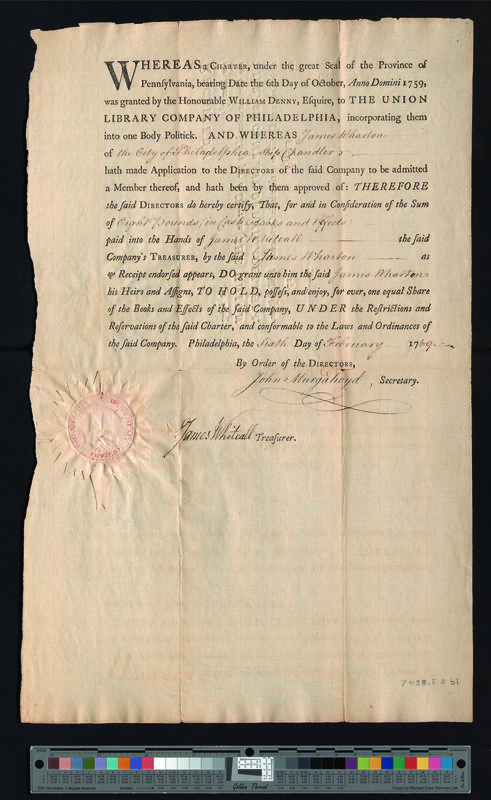 WHEREAS a CHARTER, under the great Seal of the Province of
Pennsylvania, bearing Date the 6th Day of October, Anno Domini 1759,
was granted by the Honourable WILLIAM DENNY, Esquire, to THE UNION
LIBRARY COMPANY OF PHILADELPHIA, incorporating them
into one Body Politick. AND WHEREAS James Wharton
of the City of Philadelphia Ship Chandler
hath made Application to the DIRECTORS of the said Company to be admitted
a Member thereof, and hath been by them approved of: THEREFORE
the said DIRECTORS do hereby certify, That, for and in Consideration of the Sum
of Eight Pounds in Cash Books and Effects
paid into the Hands of James Whiteall the said
Company's TREASURER, by the said James Wharton as
Receipt endorsed appears, DO grant unto him the said James Wharton
his Heirs and Assigns, TO HOLD, possess, and enjoy, for ever, one equal Share
of the Books and Effects of the said Company, UNDER the Restrictions and
Reservations of the said Charter, and conformable to the Laws and Ordinances of
the said Company. Philadelphia, the Sixth Day of February 1769
By Order of the DIRECTORS,
John , Secretary.
James Whiteall Treasurer.
COMPANY
7428.F.8 b1
Golden Thread